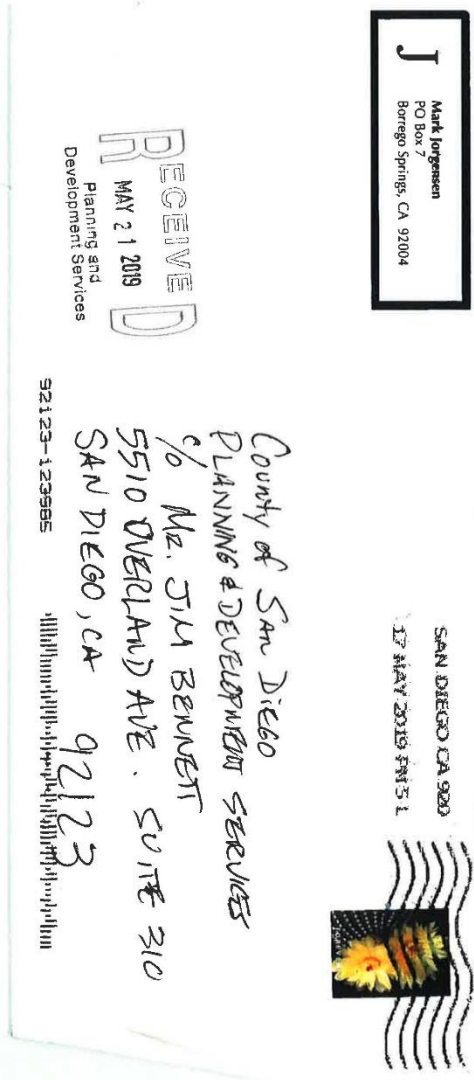 J
Mark Jorgensen
PO Box 7
Borrego Springs, CA 92004
SAN DIEGO CA 920
17 MAY 2019 PM 5 L
RECEIVED
MAY 21 2019
Planning and
Development Services
County of SAN DIEGO
PLANNING & DEVELOPMENT SERVICES
c/o MR. JIM BENNETT
5510 OVERLAND AVE. SUITE 310
SAN DIEGO, CA 92123
92123-123985